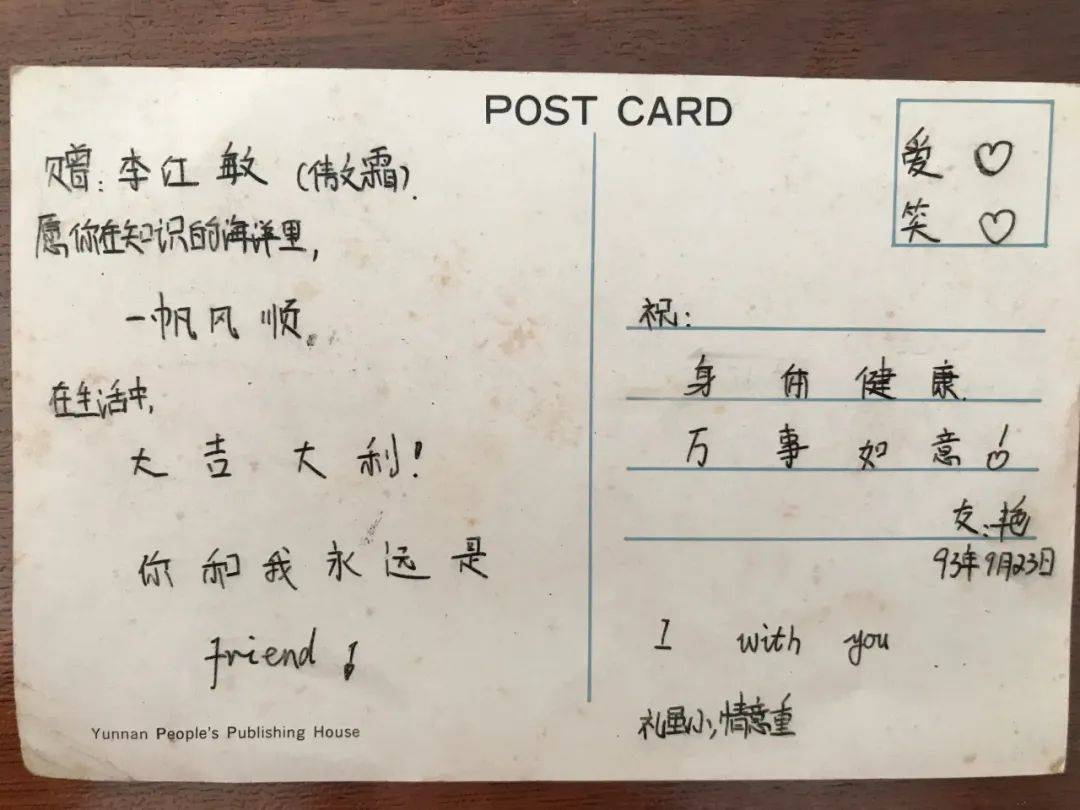 POST CARD
赠:李红敏(倩文霜).
愿你在知识的海洋里,
一帆风顺。
在生活中,
大吉大利!
你和我永远是
friend!
Yunnan People's Publishing House
爱♡
笑♡
祝:
身体健康.
万事如意!
友:艳
93年9月23日
I with you
礼虽小,情意重